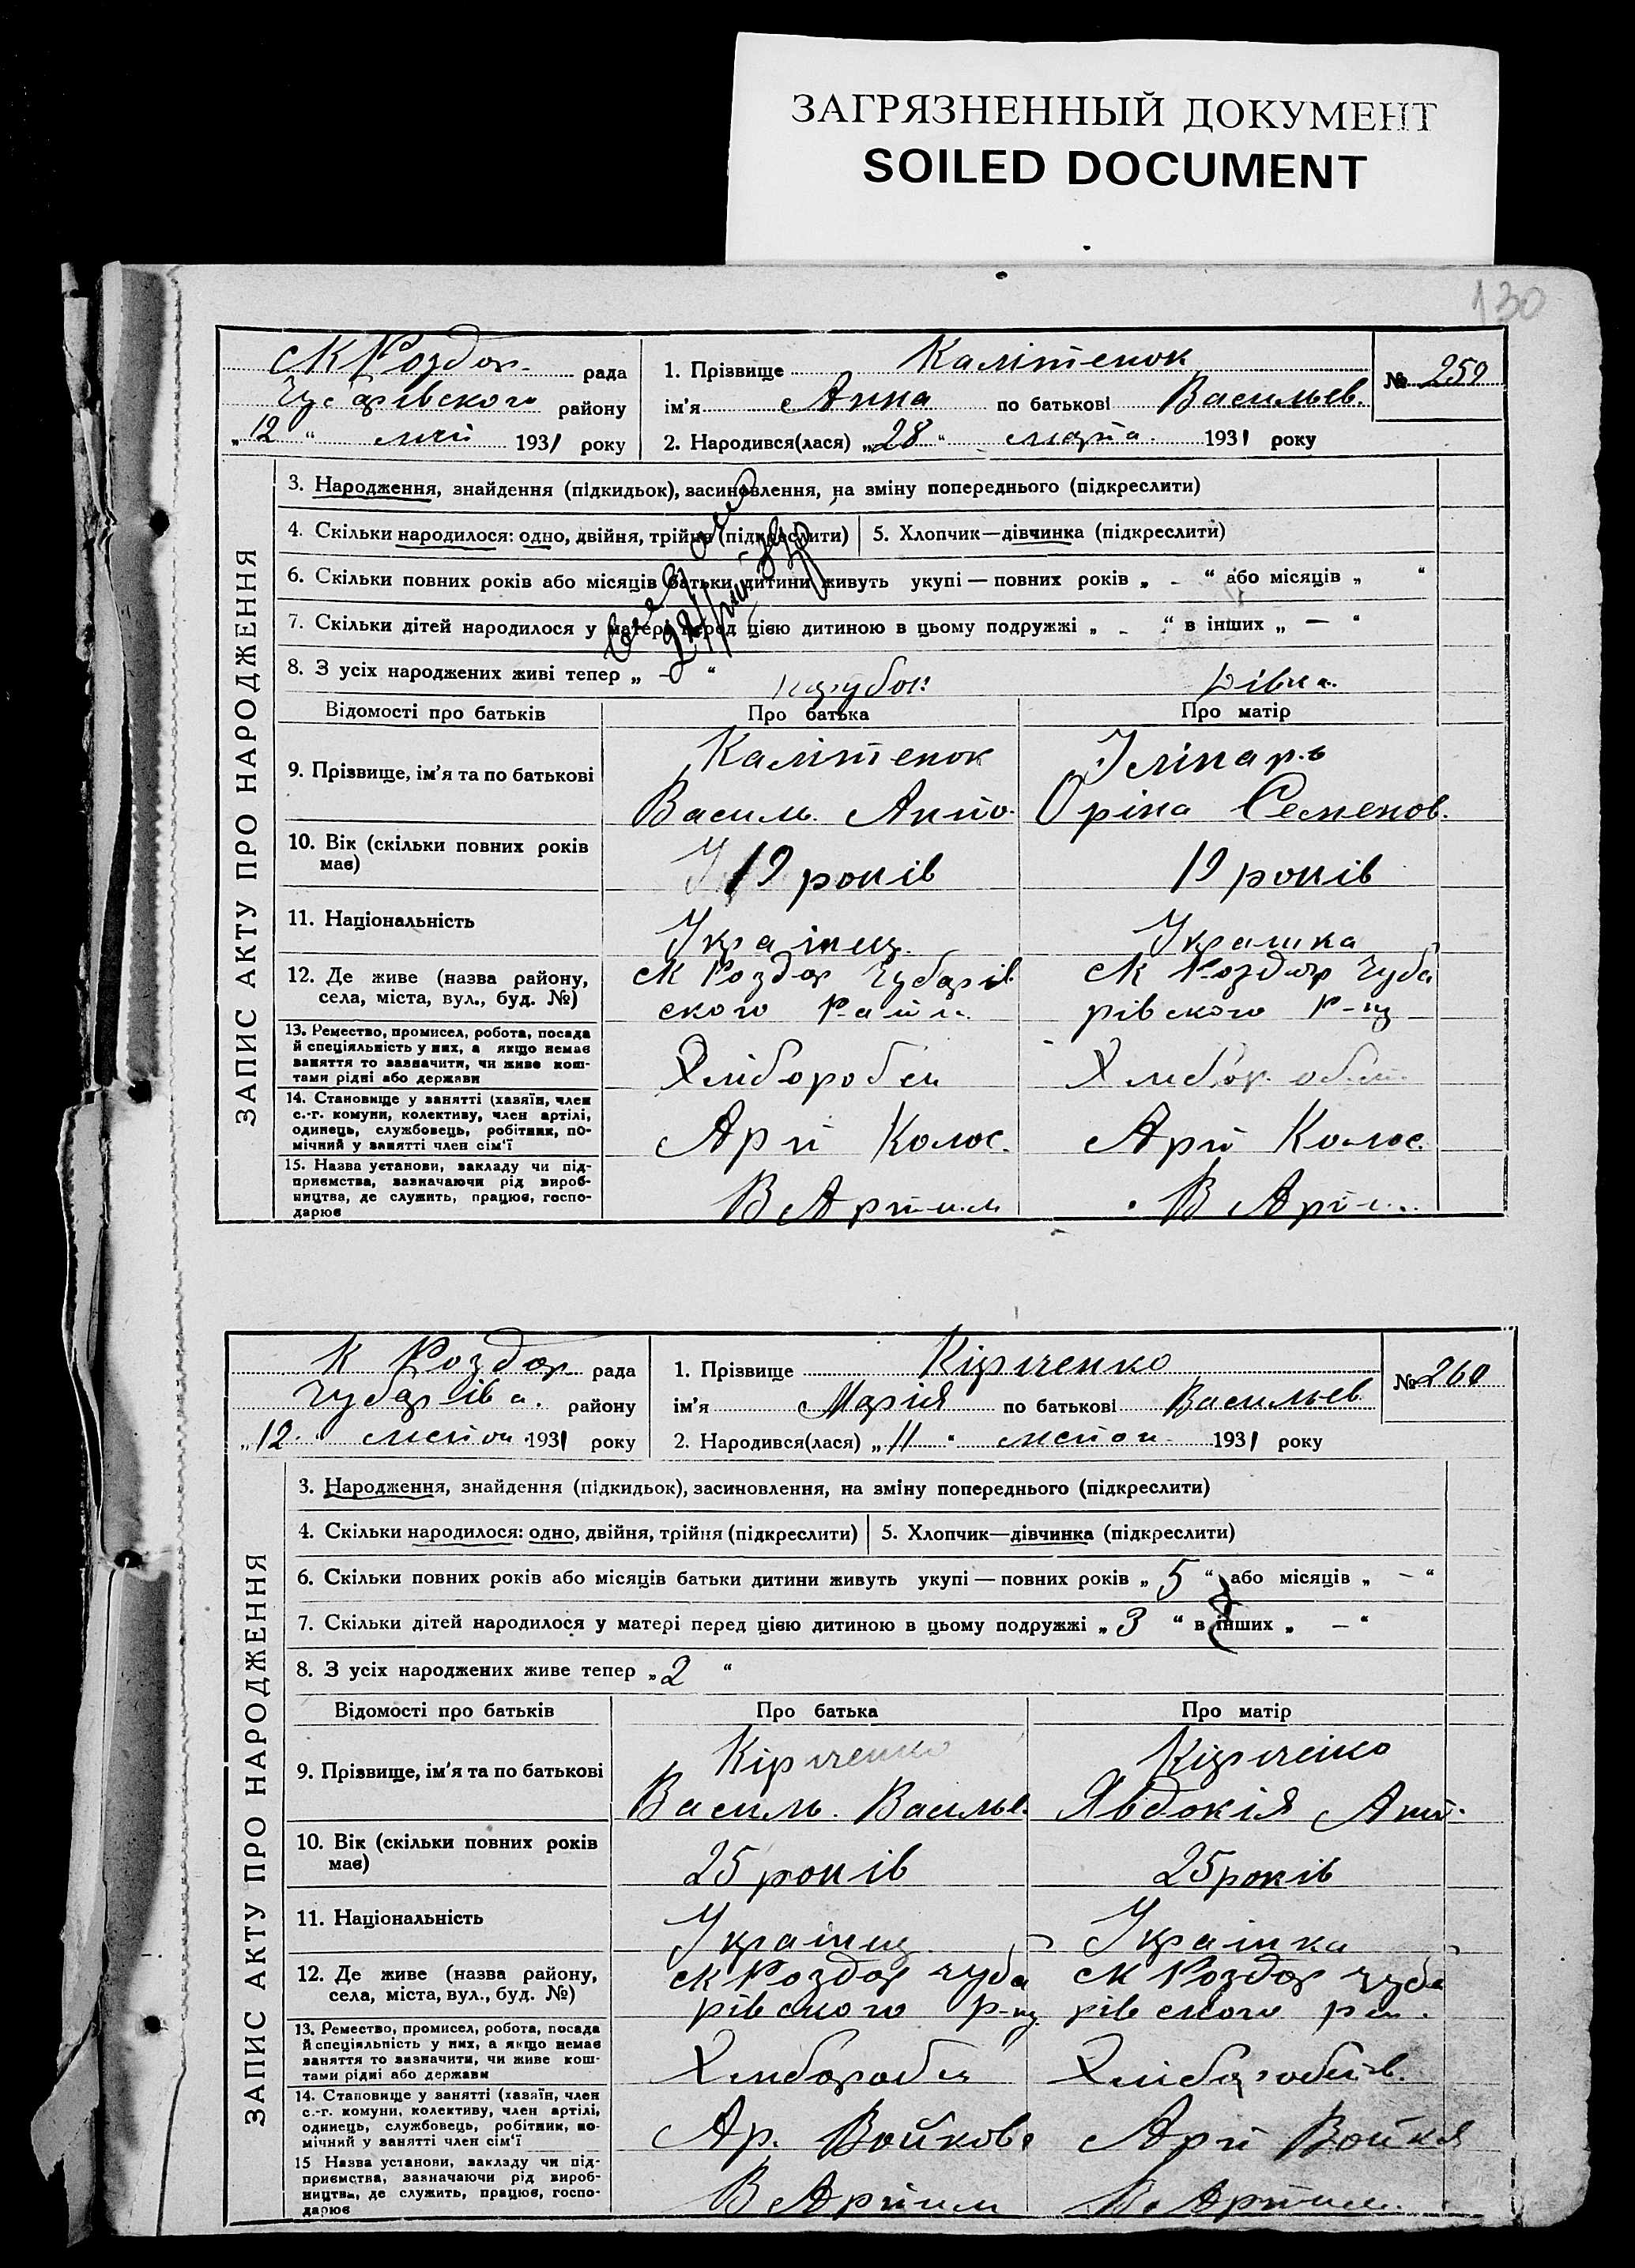 ЗАГРЯЗНЕННЫЙ ДОКУМЕНТ
SOILED DOCUMENT
130
СК Роздор. рада
1. Прізвище Калітенок
№ 259
Чубарівского району
ім'я Анна по батькові Васильев.
„12“ мая 1931 року
2. Народився(лася) „28“ марта 1931 року
ЗАПИС АКТУ ПРО НАРОДЖЕННЯ
3. Народження, знайдення (підкидьок), засиновлення, на зміну попереднього (підкреслити)
4. Скільки народилося: одно, двійня, трійня (підкреслити)
5. Хлопчик—дівчинка (підкреслити)
6. Скільки повних років або місяців батьки дитини живуть укупі — повних років „ - “ або місяців „ “
7. Скільки дітей народилося у матері перед цією дитиною в цьому подружжі „ - “ в інших „ — “
8. З усіх народжених живі тепер „ - “
парубок
дівка
Відомості про батьків
Про батька
Про матір
9. Прізвище, ім'я та по батькові
Калітенок
Василь Анто.
Оріна Семенов.
10. Вік (скільки повних років має)
19 років
19 років
11. Національність
Українец
Украинка
12. Де живе (назва району,
села, міста, вул., буд. №)
СК Роздор Чубарів
ского Райн.
СК Роздор Чуба
рівского Р-ну
13. Ремество, промисел, робота, посада
й спеціяльність у них, а якщо немає
заняття то зазначити, чи живе кош-
тами рідні або держави
Хлібороб
Хлібороб
14. Становище у занятті (хазяїн, член
с.-г. комуни, колективу, член артілі,
одинець, службовець, робітник, по-
мічний у занятті член сім'ї
Арт Колос.
Арт Колос.
15. Назва установи, закладу чи під-
приємства, зазначаючи рід вироб-
ництва, де служить, працює, госпо-
дарює
В Артили
В Арти
К Роздор рада
1. Прізвище Кірченко
№ 260
Чубарівс. району
ім'я Марія по батькові Васильев
„12“ мая 1931 року
2. Народився(лася) „11“ мая 1931 року
ЗАПИС АКТУ ПРО НАРОДЖЕННЯ
3. Народження, знайдення (підкидьок), засиновлення, на зміну попереднього (підкреслити)
4. Скільки народилося: одно, двійня, трійня (підкреслити)
5. Хлопчик—дівчинка (підкреслити)
6. Скільки повних років або місяців батьки дитини живуть укупі — повних років „ 5 “ або місяців „ - “
7. Скільки дітей народилося у матері перед цією дитиною в цьому подружжі „ 3 “ в інших „ — “
8. З усіх народжених живе тепер „ 2 “
Відомості про батьків
Про батька
Про матір
9. Прізвище, ім'я та по батькові
Кірченко
Василь. Василье.
Кірченко
Явдокія Ант.
10. Вік (скільки повних років має)
25 років
25 років
11. Національність
Українец
Українка
12. Де живе (назва району,
села, міста, вул., буд. №)
СК Роздор Чуба
рівского Р-ну
СК Роздор Чуба
рівского рай.
13. Ремество, промисел, робота, посада
й спеціяльність у них, а якщо немає
заняття то зазначити, чи живе кош-
тами рідні або держави
Хлібороб
Хлібороб
14. Становище у занятті (хазяїн, член
с.-г. комуни, колективу, член артілі,
одинець, службовець, робітник, по-
мічний у занятті член сім'ї
Ар. Войкова
Арт Войкя
15 Назва установи, закладу чи під-
приємства, зазначаючи рід вироб-
ництва, де служить, працює, госпо-
дарює
В Артили
В Артили.